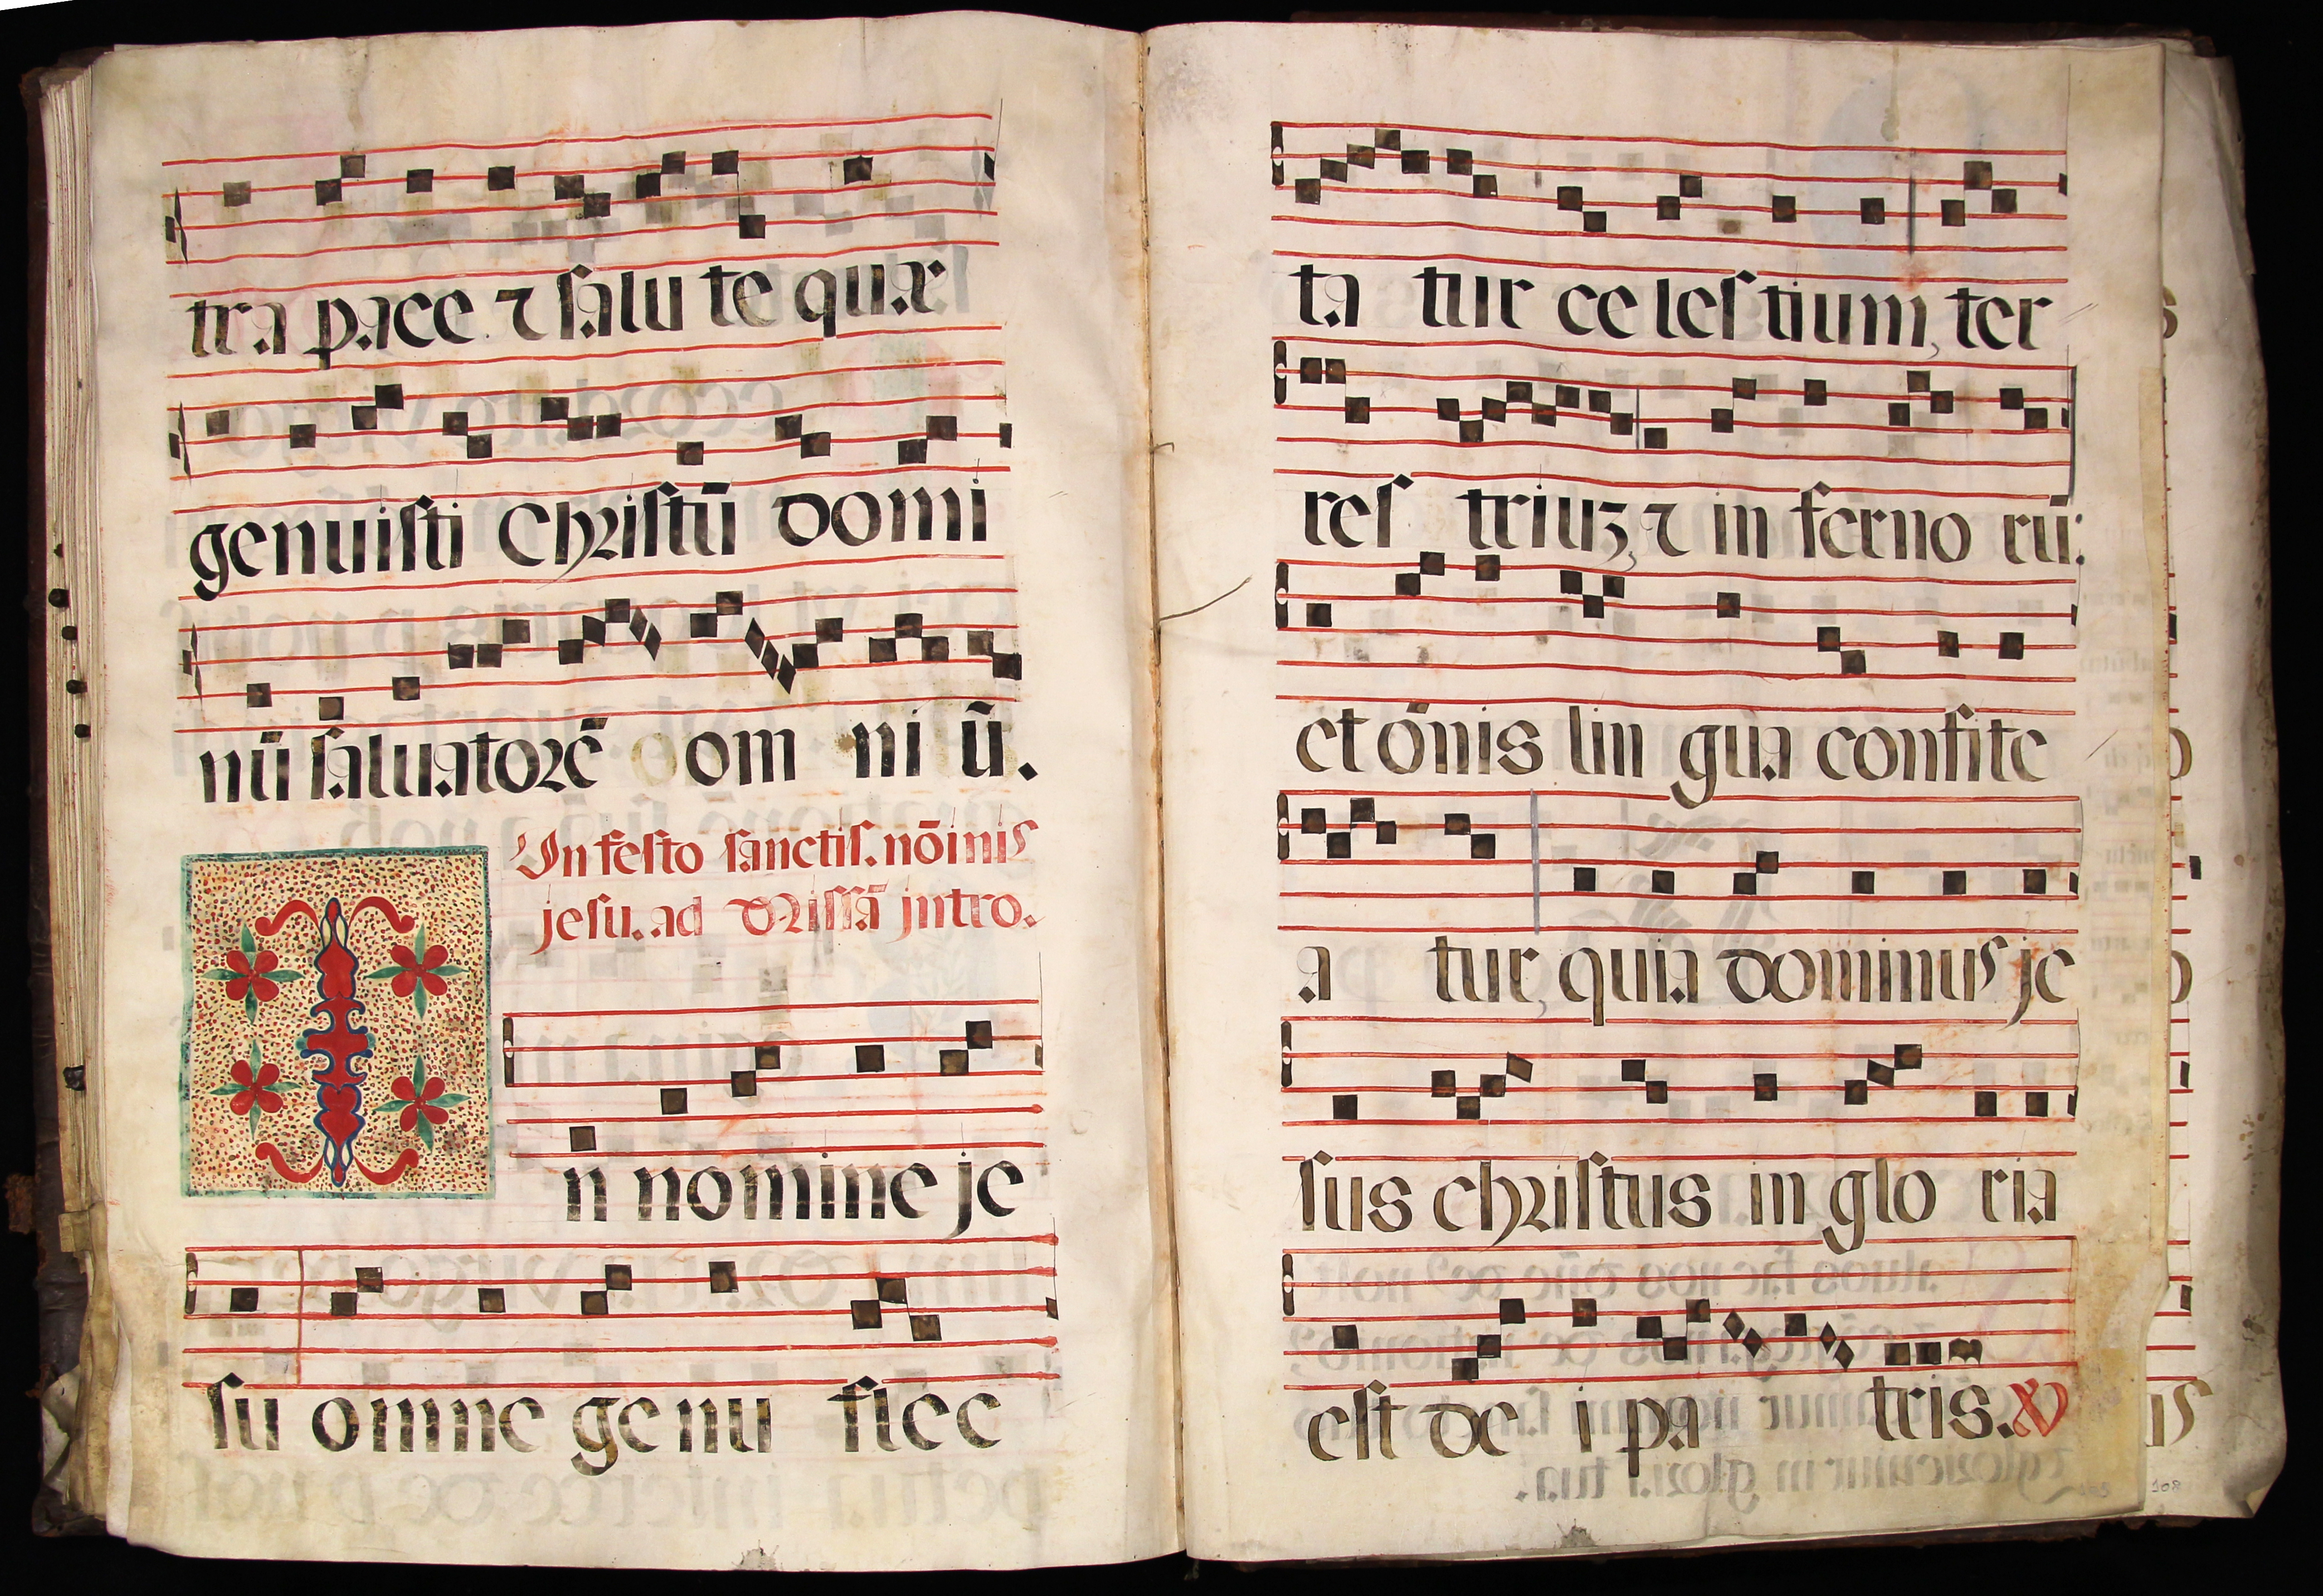 tra pace ⁊ salu te quæ
genuisti Christū domi
nū saluatorē om ni ū.
In festo sanctis. nōinis
jesu. ad Missā jntro.
I n nomine je
su omne genu flec
ta tur ce les tium, ter
res triuz, ⁊ in ferno rū:
et ōnis lin gua confite
a tur, quia dominus je
sus christus in glo ria
est de i pa tris.
108